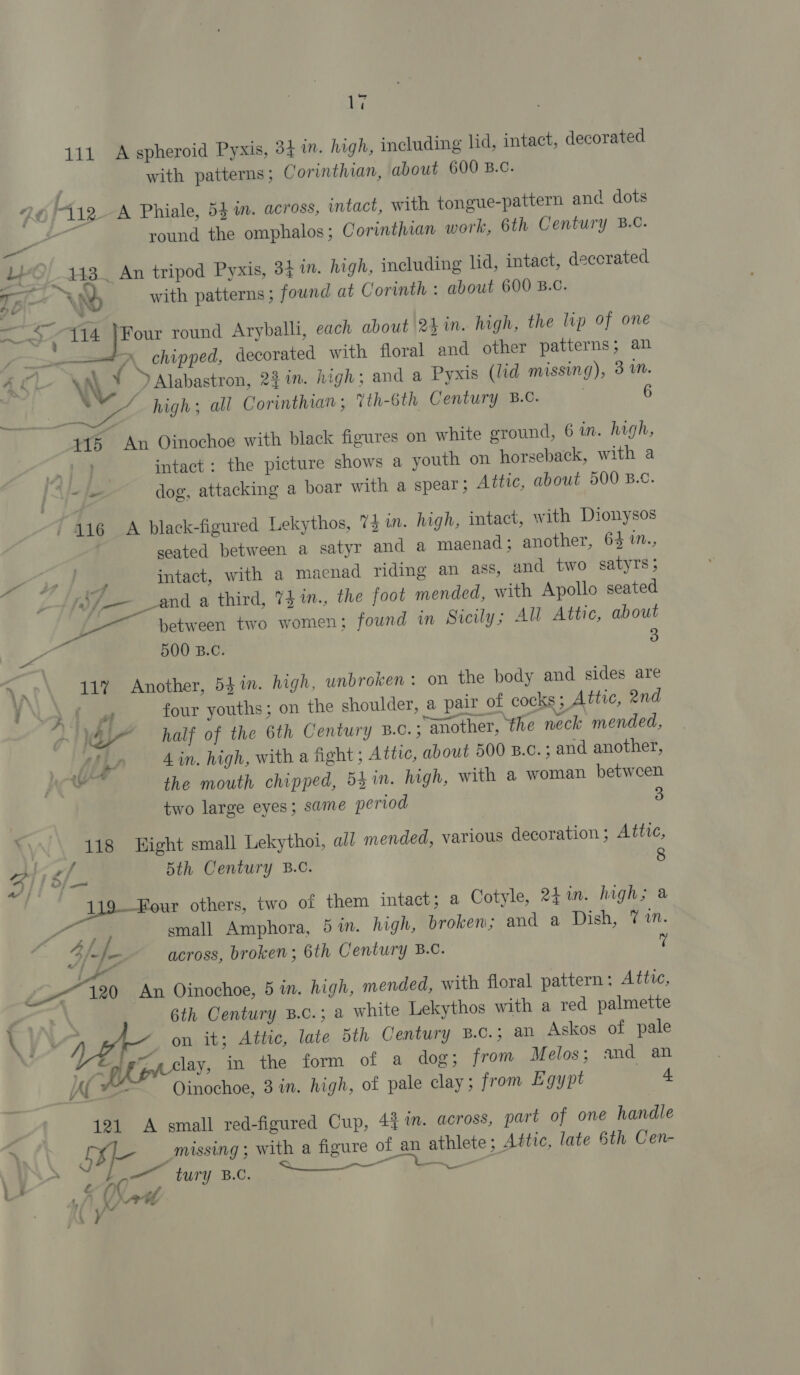 17
111 A spheroid Pyxis, 3¼ in. high, including lid, intact, decorated
with patterns; Corinthian, about 600 B.C.
112 A Phiale, 5½ in. across, intact, with tongue-pattern and dots
round the omphalos; Corinthian work, 6th Century B.C.
113 An tripod Pyxis, 3¼ in. high, including lid, intact, decorated
with patterns; found at Corinth: about 600 B.C.
114 Four round Aryballi, each about 2½ in. high, the lip of one
chipped, decorated with floral and other patterns; an
Alabastron, 2¾ in. high; and a Pyxis (lid missing), 3 in.
high; all Corinthian; 7th-6th Century B.C. 6
115 An Oinochoe with black figures on white ground, 6 in. high,
intact: the picture shows a youth on horseback, with a
dog, attacking a boar with a spear; Attic, about 500 B.C.
116 A black-figured Lekythos, 7½ in. high, intact, with Dionysos
seated between a satyr and a maenad; another, 6½ in.,
intact, with a maenad riding an ass, and two satyrs;
and a third, 7½ in., the foot mended, with Apollo seated
between two women; found in Sicily; All Attic, about
500 B.C. 3
117 Another, 5½ in. high, unbroken: on the body and sides are
four youths; on the shoulder, a pair of cocks; Attic, 2nd
half of the 6th Century B.C.; another, the neck mended,
4 in. high, with a fight; Attic, about 500 B.C.; and another,
the mouth chipped, 5½ in. high, with a woman between
two large eyes; same period 3
118 Eight small Lekythoi, all mended, various decoration; Attic,
5th Century B.C. 8
119 Four others, two of them intact; a Cotyle, 2¼ in. high; a
small Amphora, 5 in. high, broken; and a Dish, 7 in.
across, broken; 6th Century B.C. 7
120 An Oinochoe, 5 in. high, mended, with floral pattern: Attic,
6th Century B.C.; a white Lekythos with a red palmette
on it; Attic, late 5th Century B.C.; an Askos of pale
clay, in the form of a dog; from Melos; and an
Oinochoe, 3 in. high, of pale clay; from Egypt 4
121 A small red-figured Cup, 4¾ in. across, part of one handle
missing; with a figure of an athlete; Attic, late 6th Cen-
tury B.C.